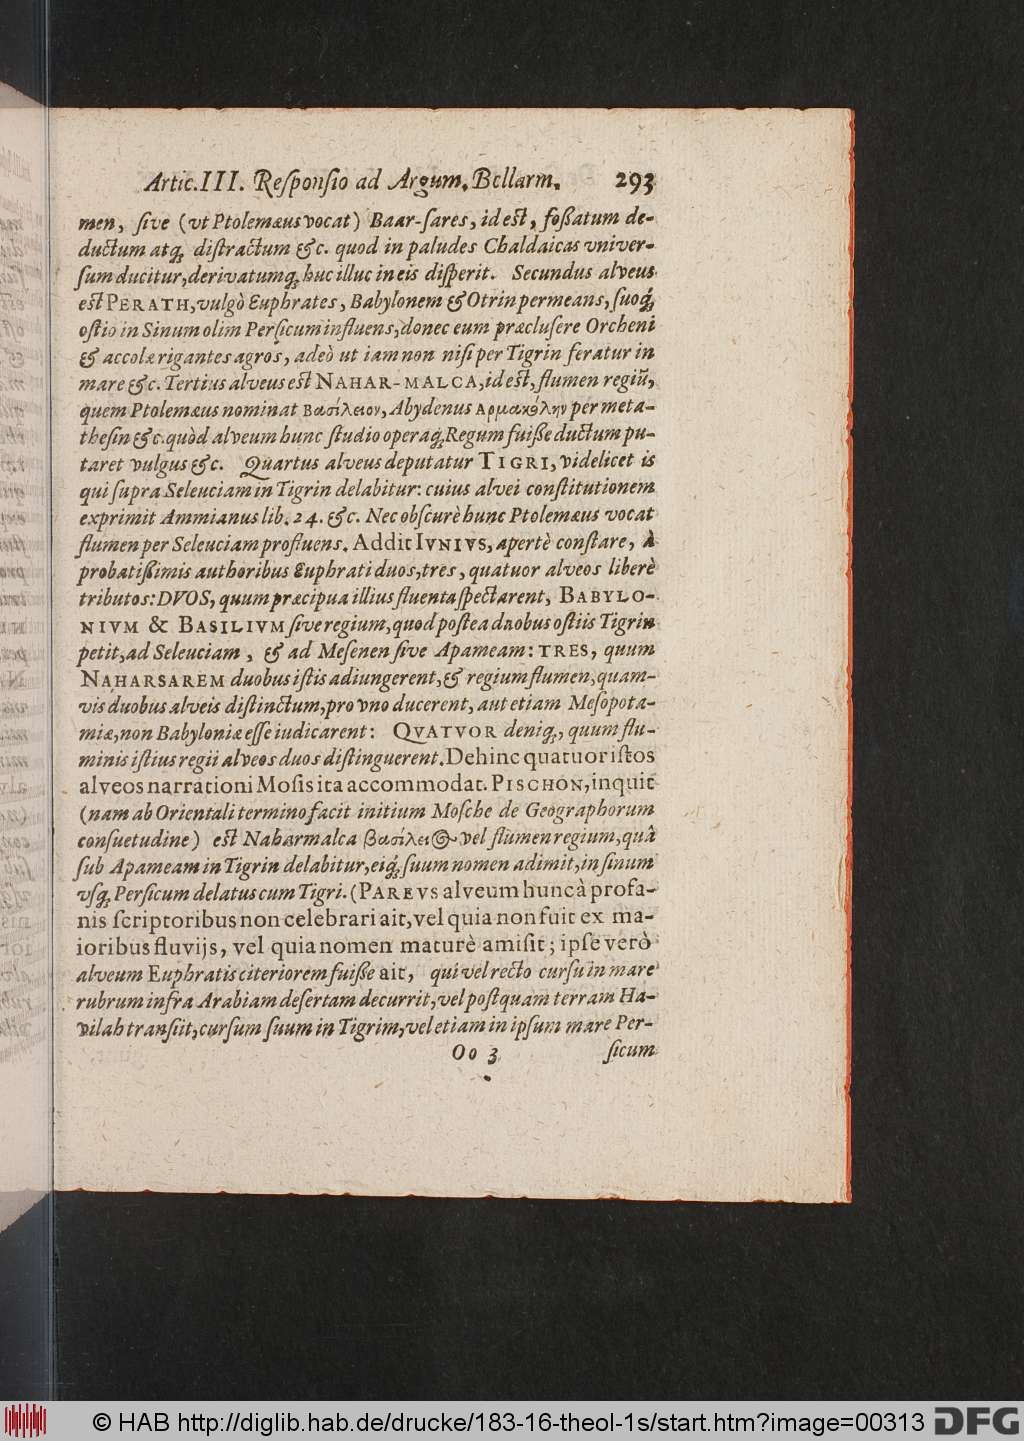 Artic. III. Reſponſio ad Argum. Bellarm. 293
men, ſive (vt Ptolemæus vocat) Baar-ſares, id eſt, foßatum de-
ductum atq́; diſtractum &c. quod in paludes Chaldaicas vniver-
ſum ducitur, derivatumq́; huc illuc in eis diſperit. Secundus alveus
eſt PERATH, vulgò Euphrates, Babylonem & Otrin permeans, ſuoq́;
oſtio in Sinum olim Perſicum influens, donec eum præcluſere Orcheni
& accolæ rigantes agros, adeò ut iam non niſi per Tigrin feratur in
mare &c. Tertius alveus eſt NAHAR-MALCA, id eſt, flumen regiū,
quem Ptolemæus nominat βασίλειον, Abydenus Αρμακάλην per meta-
theſin &c. quòd alveum hunc ſtudio operaq́; Regum fuiße ductum pu-
taret vulgus &c. Quartus alveus deputatur TIGRI, videlicet is
qui ſupra Seleuciam in Tigrin delabitur: cuius alvei conſtitutionem
exprimit Ammianus lib. 24. &c. Nec obſcurè hunc Ptolemæus vocat
flumen per Seleuciam profluens. Addit IVNIVS, apertè conſtare, à
probatißimis authoribus Euphrati duos, tres, quatuor alveos liberè
tributos: DVOS, quum præcipua illius fluenta ſpectarent, BABYLO-
NIVM & BASILIVM ſive regium, quod poſtea duobus oſtiis Tigrin
petit, ad Seleuciam, & ad Meſenen ſive Apameam: TRES, quum
NAHARSAREM duobus iſtis adiungerent, & regium flumen, quam-
vis duobus alveis diſtinctum, pro vno ducerent, aut etiam Meſopota-
miæ, non Babyloniæ eſſe iudicarent: QVATVOR deniq́;, quum flu-
minis iſtius regii alveos duos diſtinguerent. Dehinc quatuor iſtos
alveos narrationi Moſis ita accommodat. PISCHON, inquit
(nam ab Orientali termino facit initium Moſche de Geographorum
conſuetudine) eſt Naharmalca βασίλειος vel flumen regium, quà
ſub Apameam in Tigrin delabitur, eiq́; ſuum nomen adimit, in ſinum
vſq́; Perſicum delatus cum Tigri. (PAREVS alveum hunc à profa-
nis ſcriptoribus non celebrari ait, vel quia non fuit ex ma-
ioribus fluvijs, vel quia nomen maturè amiſit; ipſe verò
alveum Euphratis citeriorem fuiße ait, qui vel recto curſu in mare
rubrum infra Arabiam deſertam decurrit, vel poſtquam terram Ha-
vilah tranſiit, curſum ſuum in Tigrim, vel etiam in ipſum mare Per-
Oo 3 ſicum
© HAB http://diglib.hab.de/drucke/183-16-theol-1s/start.htm?image=00313 DFG